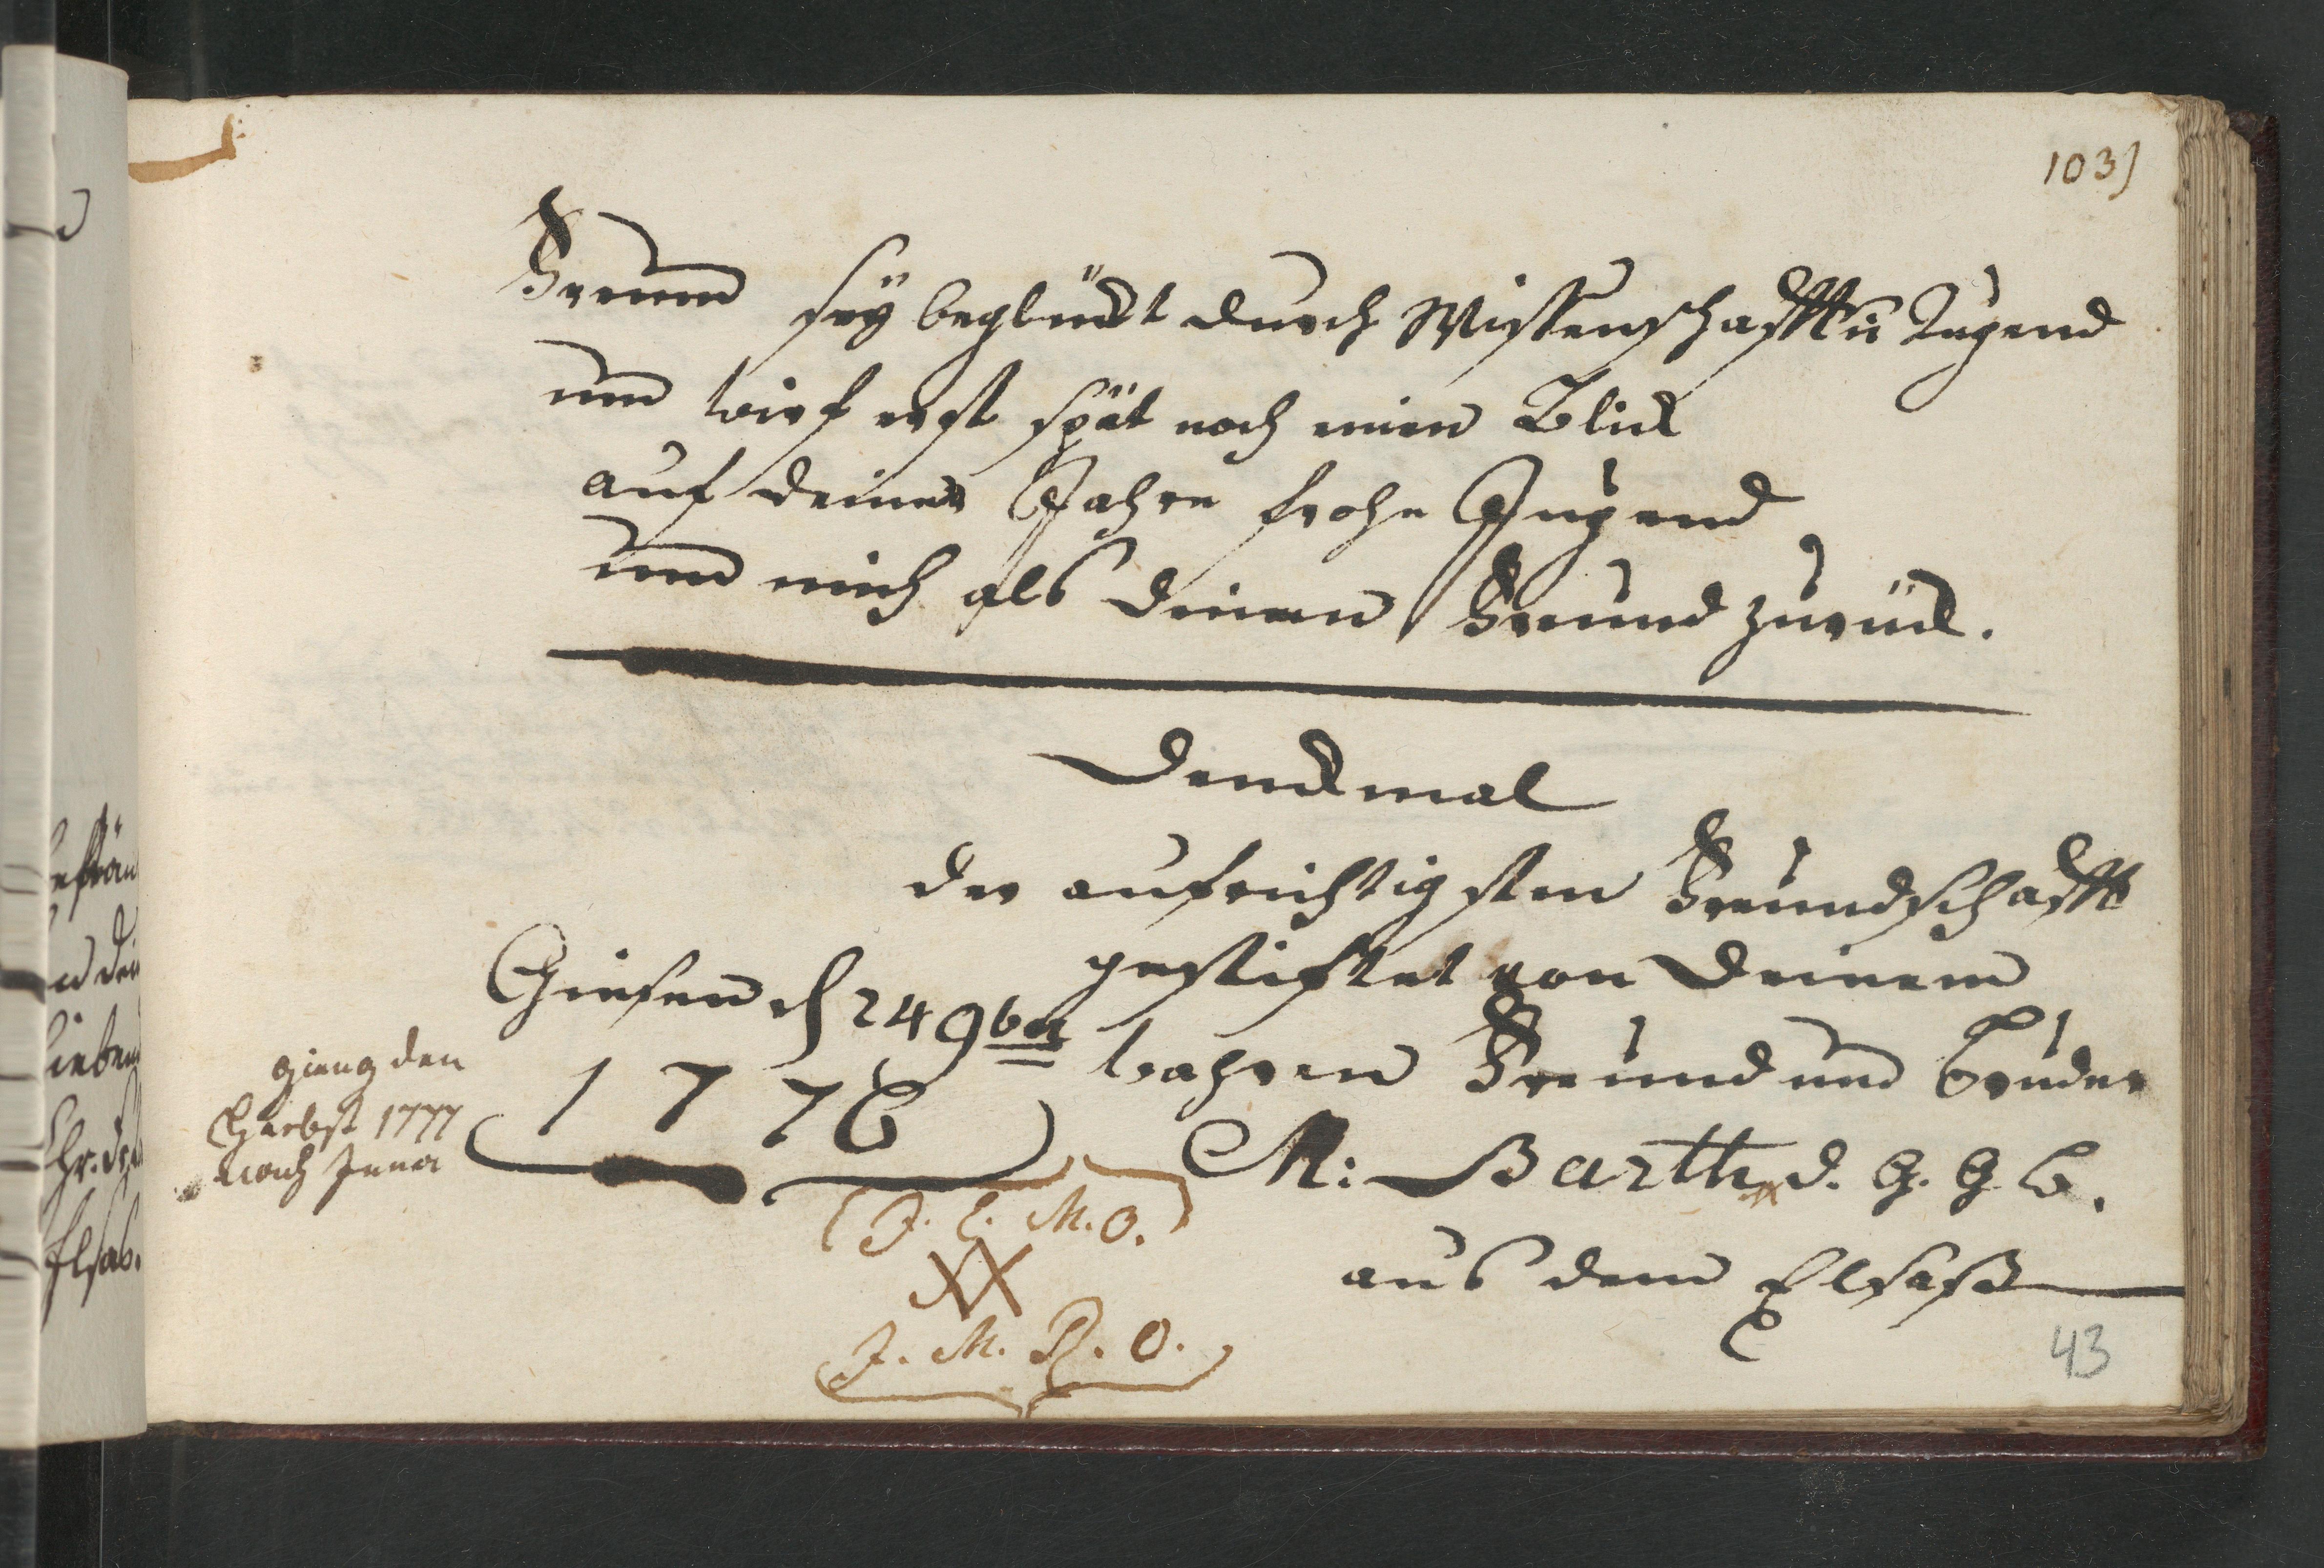 103)
Freund seÿ beglückt durch Wissenschafft u Tugend
und wirf erst spät noch einen Blick
auf deiner Jahre frohe Jugend
und mich als deinen Freund zurück.
Denckmal
der aufrichtigsten Freundschafft
gestiftet von Deinem
Giesen d 24 9br
wahren Freund und Bruder
1776
gieng den
Herbst 1777
nach Jena
M: Barth d. G. G. B.
aus dem Elsaß
J. C. M. O.
XX
J. M. R. O.
43